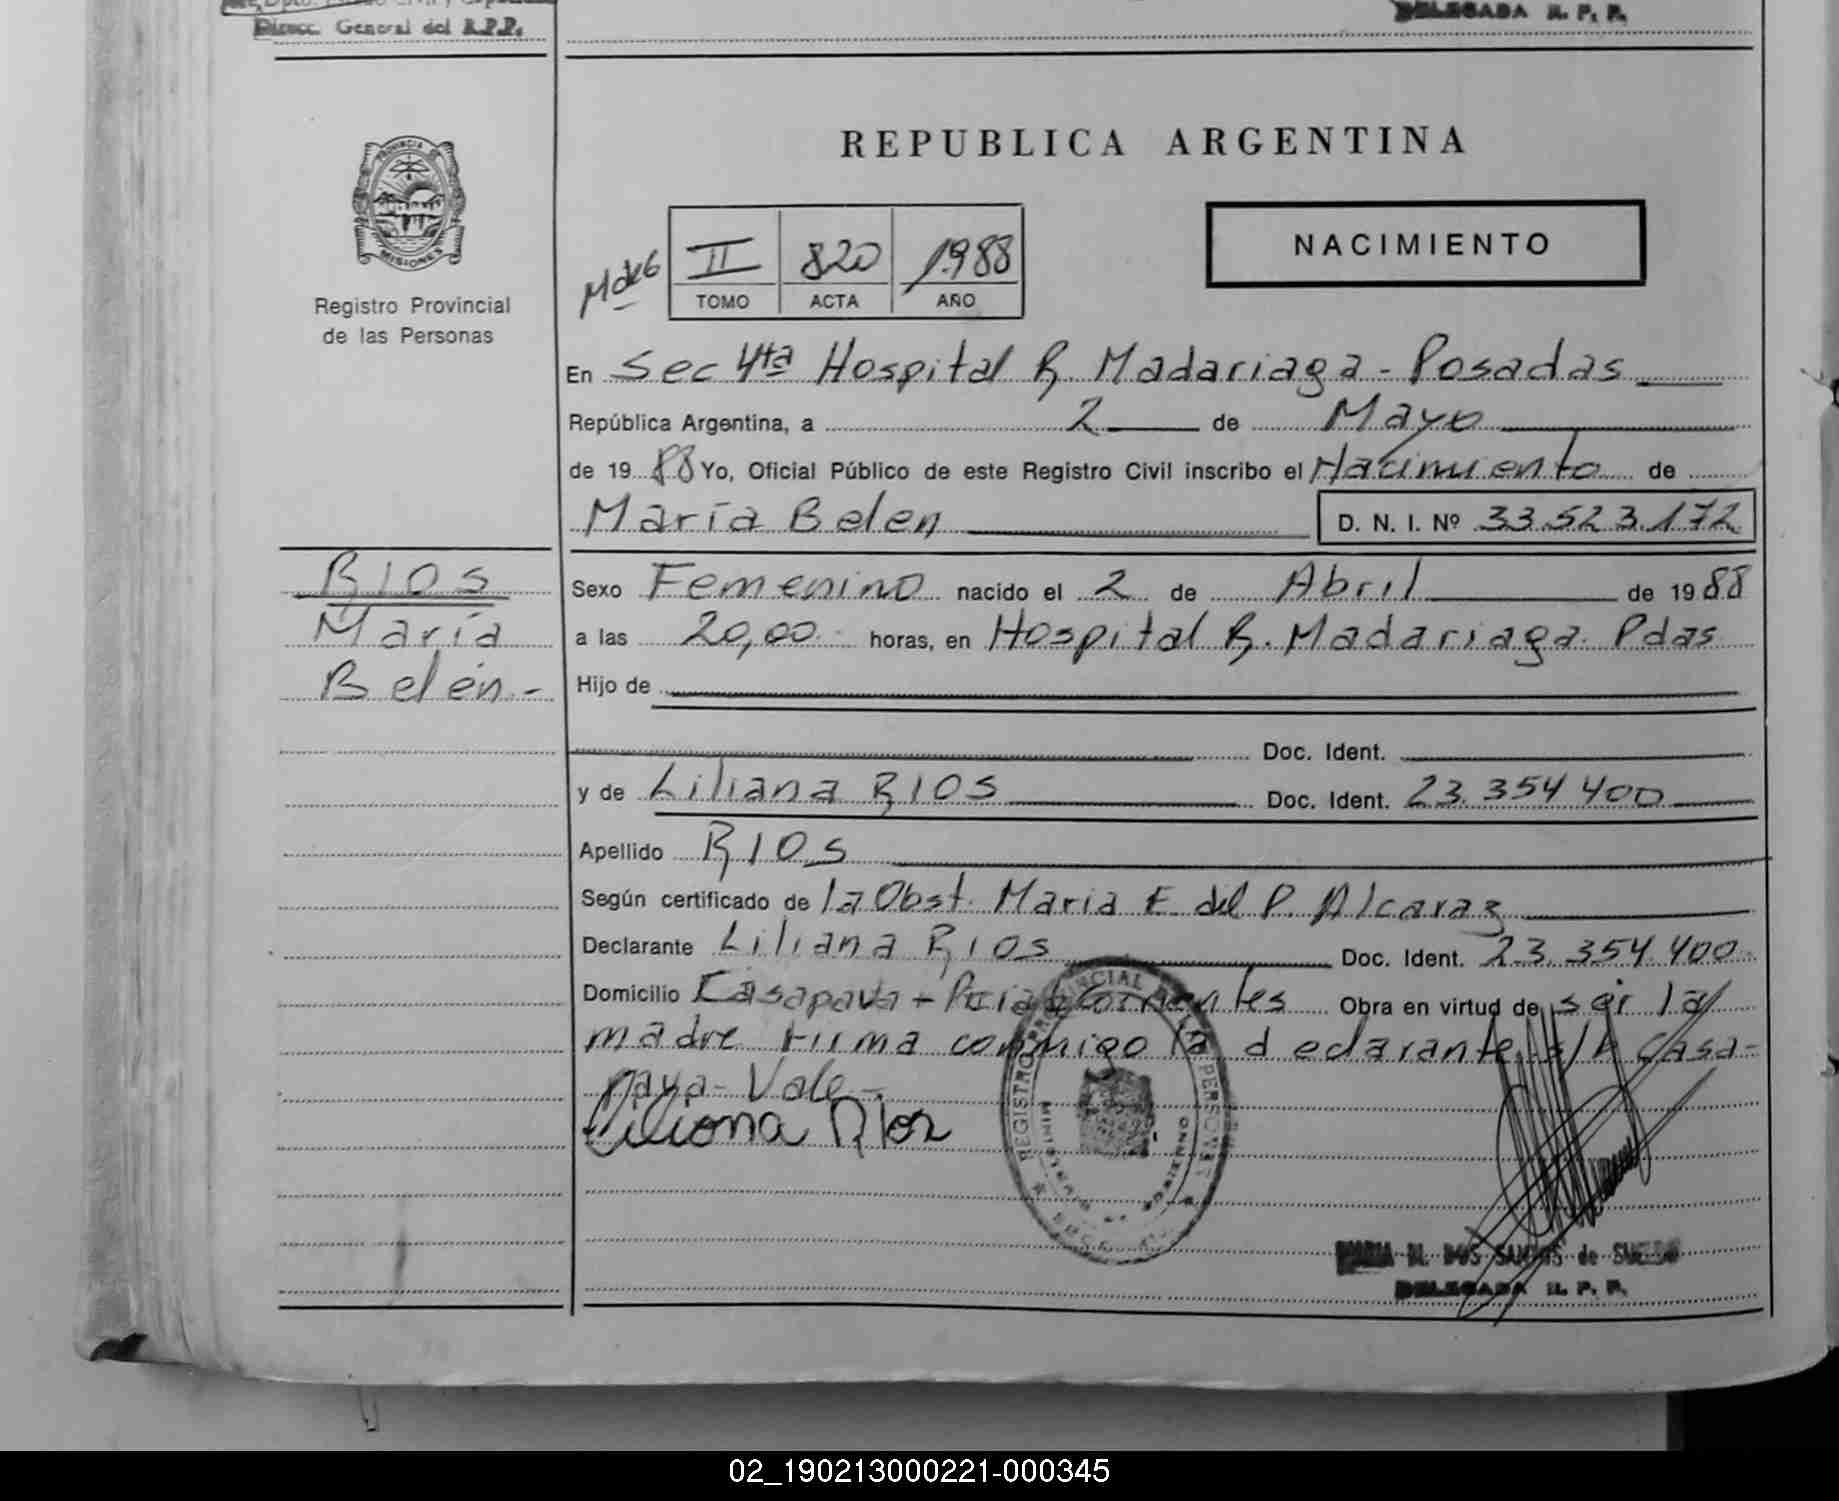 Direcc. General del R.P.P.
DELEGADA R. P. P.
PROVINCIA DE
MISIONES
Registro Provincial
de las Personas
REPUBLICA ARGENTINA
II 820 1988
TOMO ACTA AÑO
NACIMIENTO
En Sec 4ta Hospital R. Madariaga - Posadas
República Argentina, a 2 de Mayo
de 19 88 Yo, Oficial Público de este Registro Civil inscribo el Nacimiento de
María Belen D. N. I. Nº 33.523.172
RIOS
María
Belén -
Sexo Femenino nacido el 2 de Abril de 19 88
a las 20,00 horas, en Hospital R. Madariaga Pdas
Hijo de
Doc. Ident.
y de Liliana RIOS Doc. Ident. 23.354 400
Apellido RIOS
Según certificado de la Obst. Maria E. del P. Alcaraz
Declarante Liliana RIOS Doc. Ident. 23.354.400
Domicilio Corrientes Obra en virtud de ser la
madre Firma conmigo la declarante s/b Casa-
paya - Vale -
Liliana Rios
REGISTRO PROVINCIAL DE LAS PERSONAS
MINISTERIO DE GOBIERNO
MARIA N. DOS SANTOS de
DELEGADA R. P. P.
02_190213000221-000345